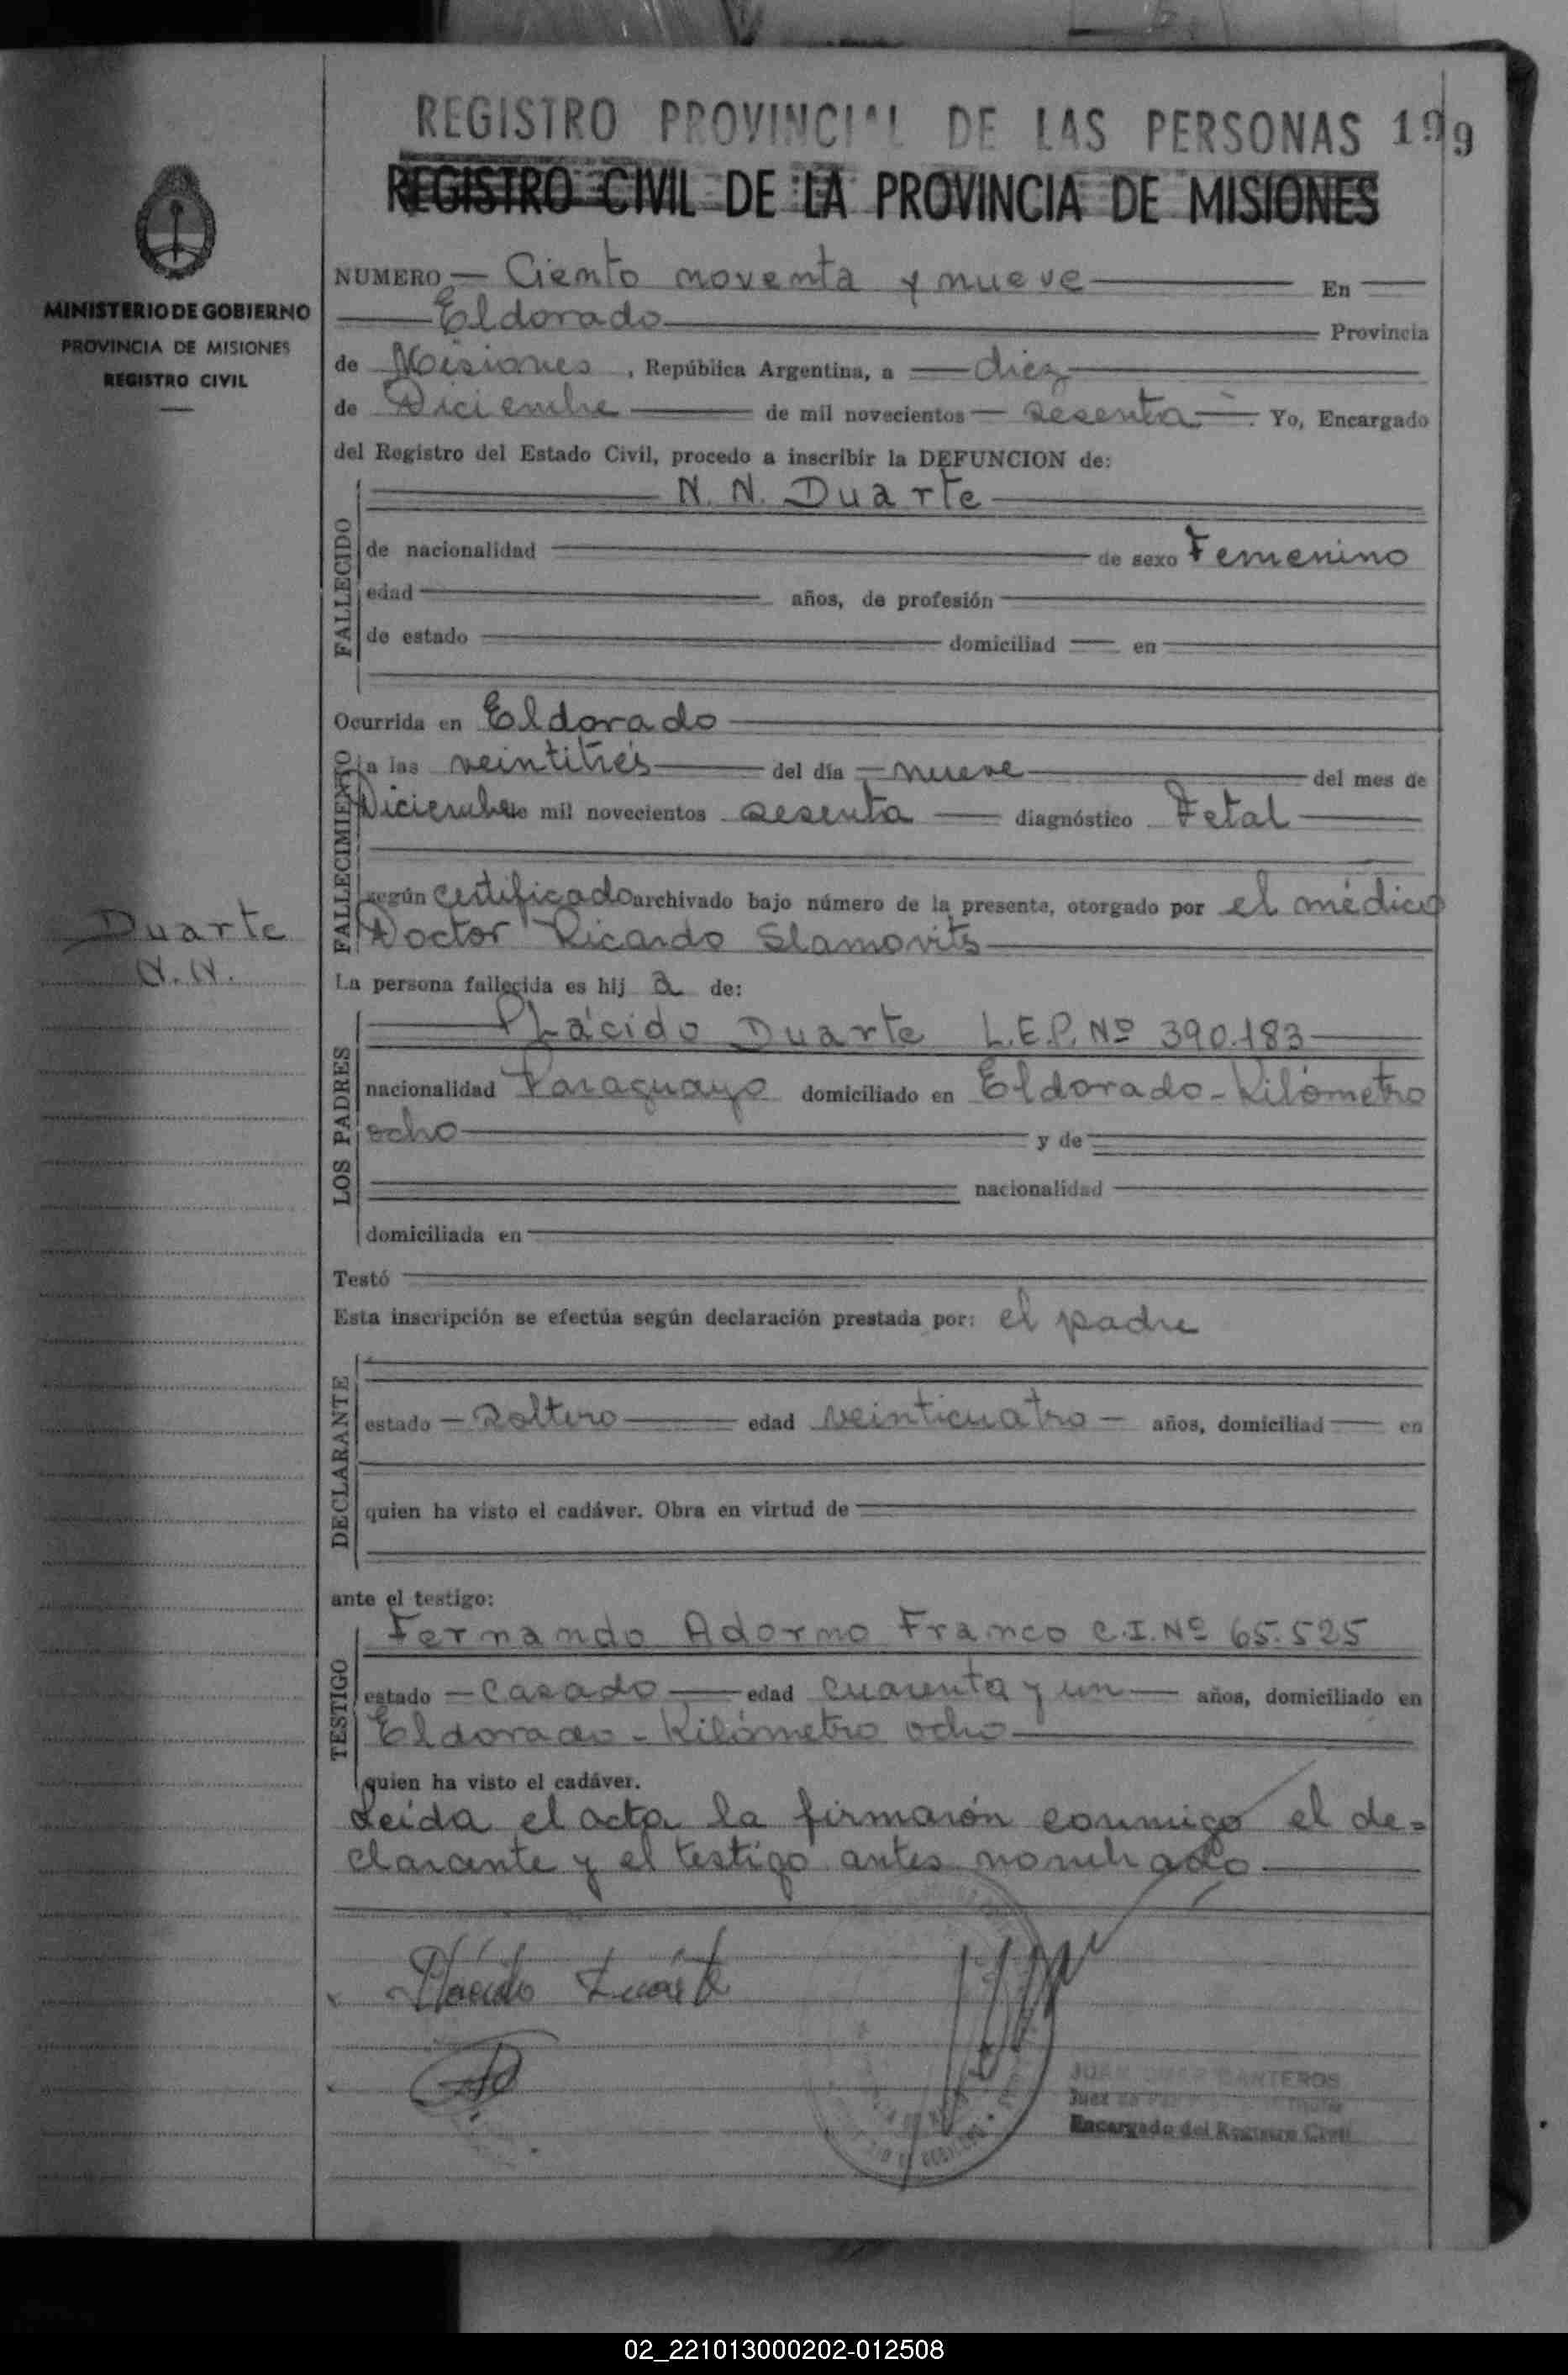 REGISTRO PROVINCIAL DE LAS PERSONAS 199
REGISTRO CIVIL DE LA PROVINCIA DE MISIONES
MINISTERIO DE GOBIERNO
PROVINCIA DE MISIONES
REGISTRO CIVIL
NUMERO Ciento noventa y nueve En
Eldorado Provincia
de Misiones, República Argentina, a diez
de Diciembre de mil novecientos sesenta. Yo, Encargado
del Registro del Estado Civil, procedo a inscribir la DEFUNCION de:
N. N. Duarte
FALLECIDO
de nacionalidad de sexo Femenino
edad años, de profesión
de estado domiciliad en
Ocurrida en Eldorado
FALLECIMIENTO
a las veintitrés del día nueve del mes de
Diciembre de mil novecientos sesenta diagnóstico Fetal
según certificado archivado bajo número de la presente, otorgado por el médico
Doctor Ricardo Slamovits
Duarte
N.N.
La persona fallecida es hij a de:
LOS PADRES
Plácido Duarte L.E.P. Nº 390.183
nacionalidad Paraguayo domiciliado en Eldorado - Kilómetro
ocho y de
nacionalidad
domiciliada en
Testó
Esta inscripción se efectúa según declaración prestada por: el padre
DECLARANTE
estado soltero edad veinticuatro años, domiciliad en
quien ha visto el cadáver. Obra en virtud de
ante el testigo:
TESTIGO
Fernando Adorno Franco C.I. Nº 65.525
estado casado edad cuarenta y un años, domiciliado en
Eldorado - Kilómetro ocho
quien ha visto el cadáver.
Leída el acta la firmarón conmigo el de=
clarante y el testigo antes nombrado
Plácido Duarte
JUAN OMAR CANTEROS
Juez de Paz
Encargado del Registro Civil
02_221013000202-012508